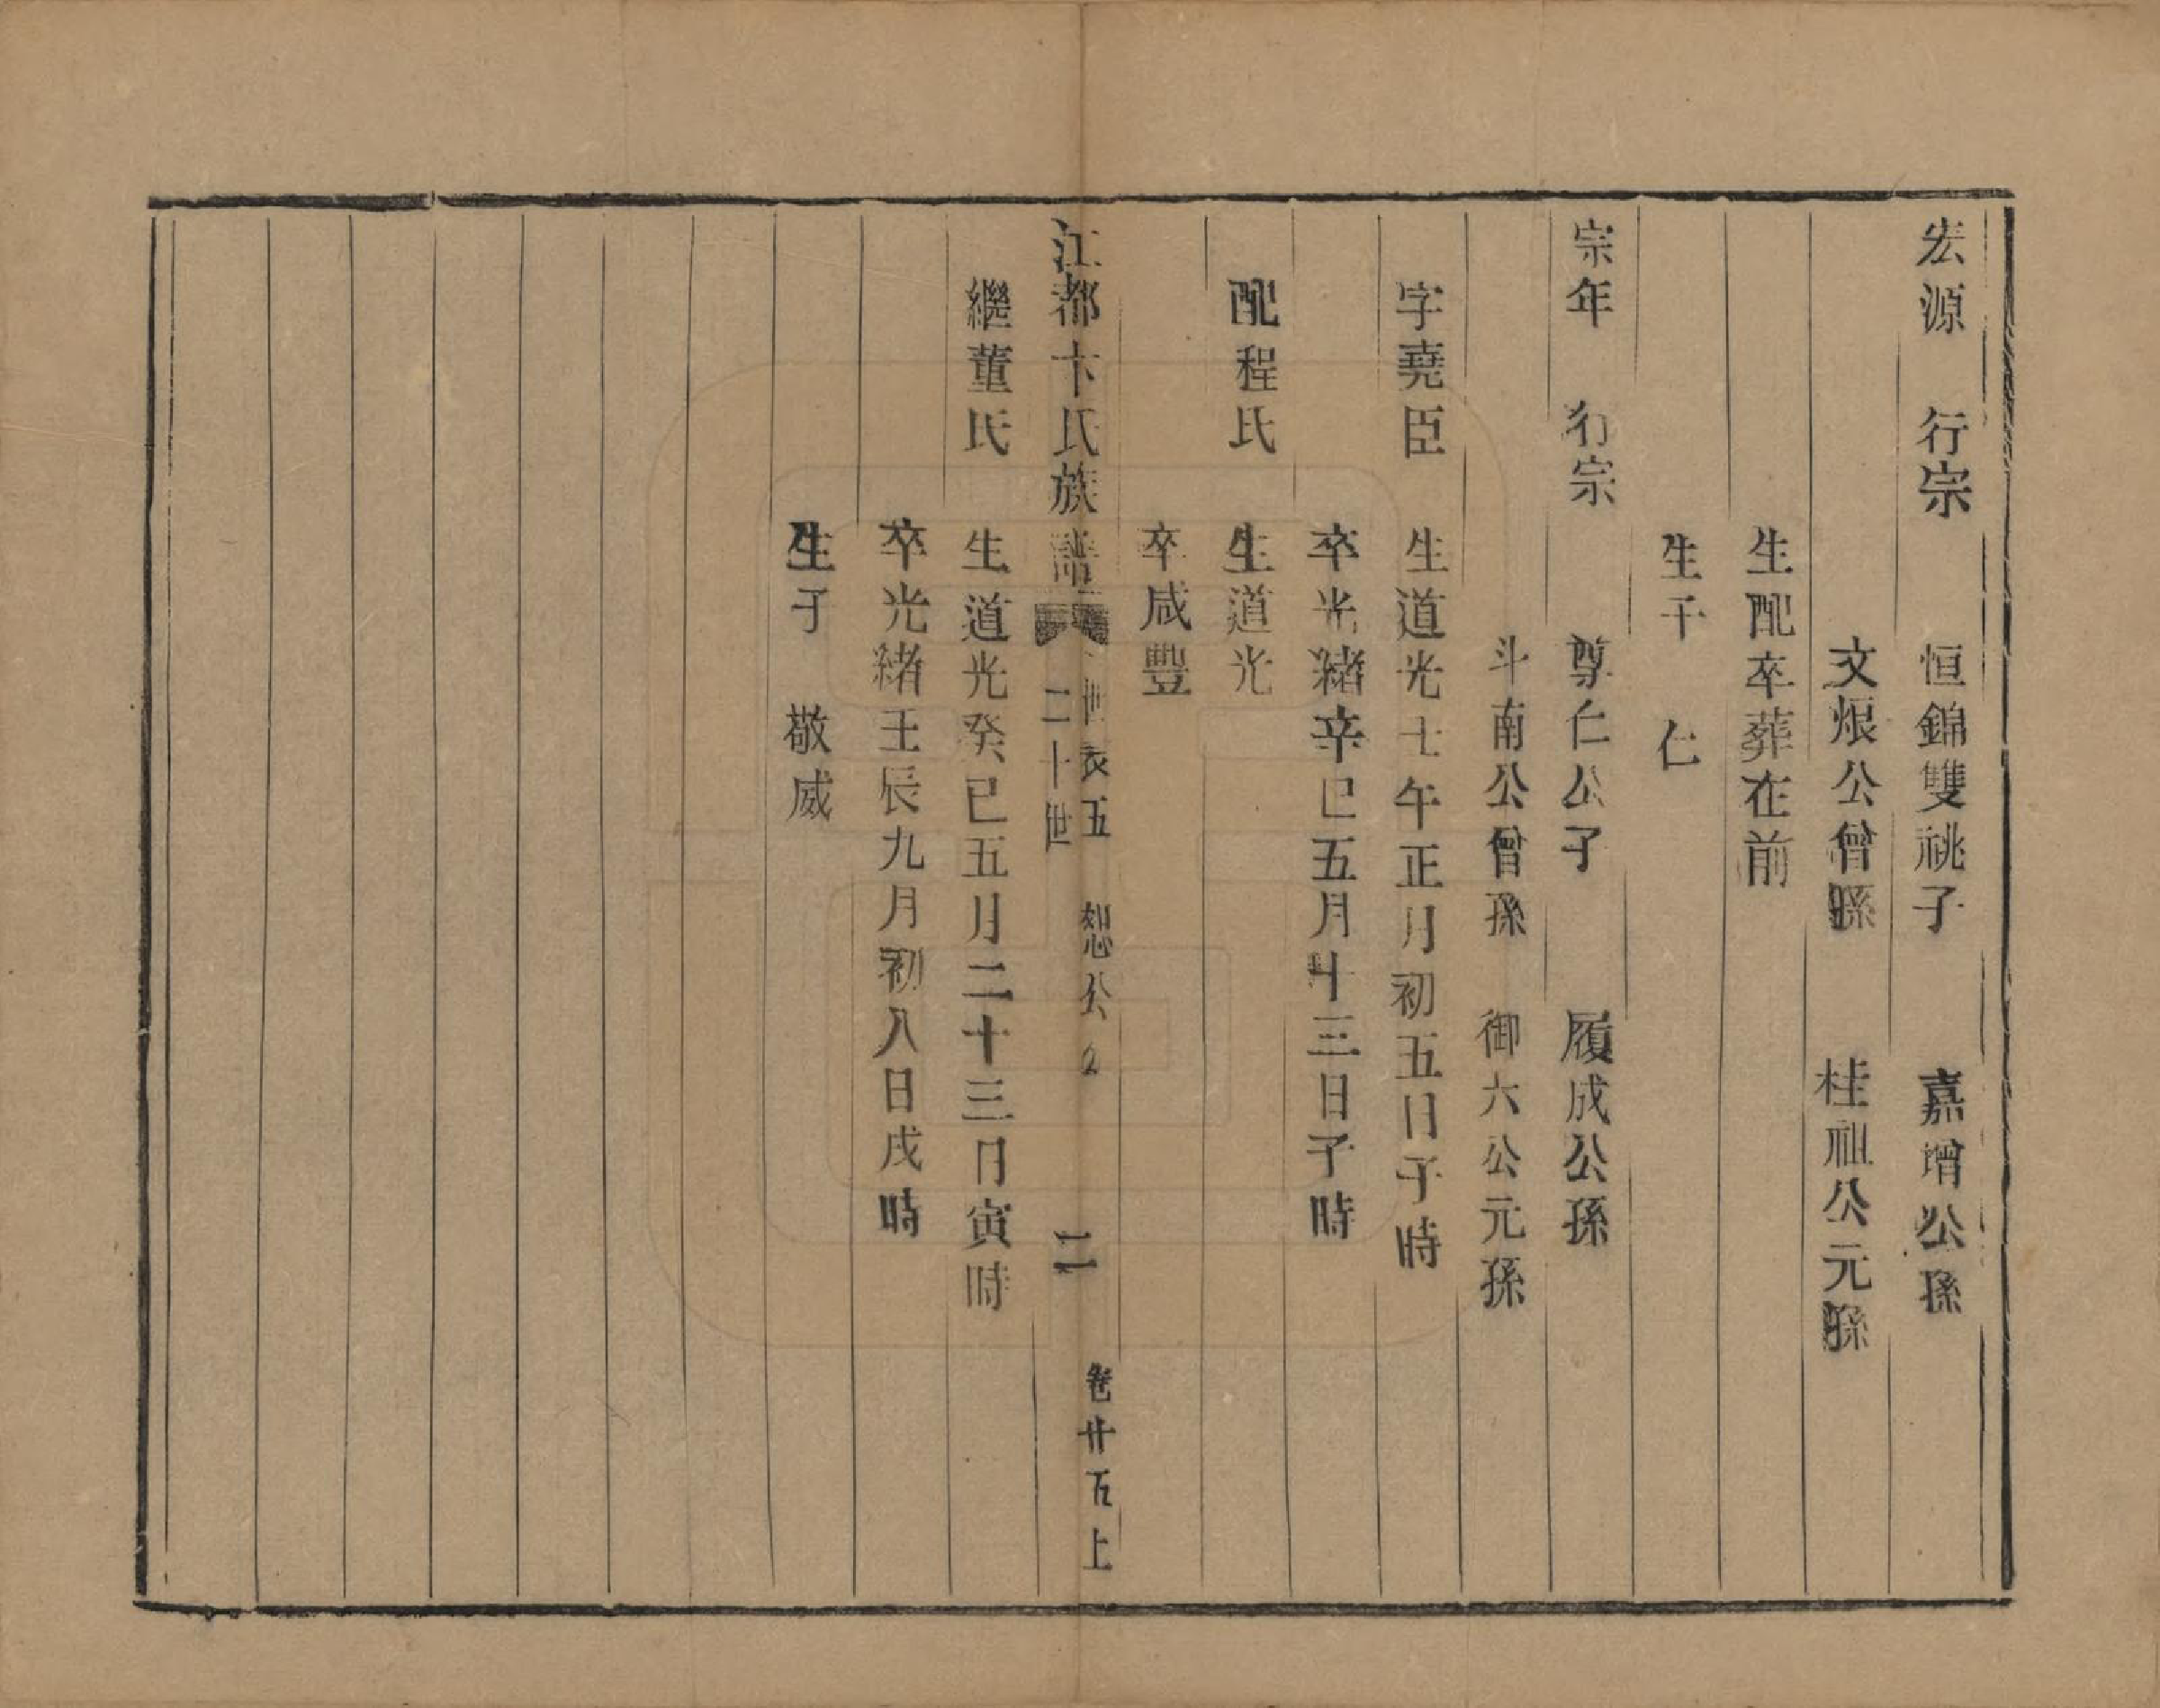 宏源 行宗 恒錦雙祧子 嘉增公孫
文烺公曾孫 桂祖公元孫
生配卒葬在前
生子 仁
宗年 行宗 尊仁公子 履成公孫
斗南公曾孫 御六公元孫
字堯臣 生道光七午正月初五日子時
卒光緒辛巳五月十三日子時
配程氏 生道光
卒咸豐
江都卞氏族譜 世表五 恕公 卷廿五上
二十世 二
繼董氏 生道光癸巳五月二十三日寅時
卒光緒壬辰九月初八日戌時
生子 敬威